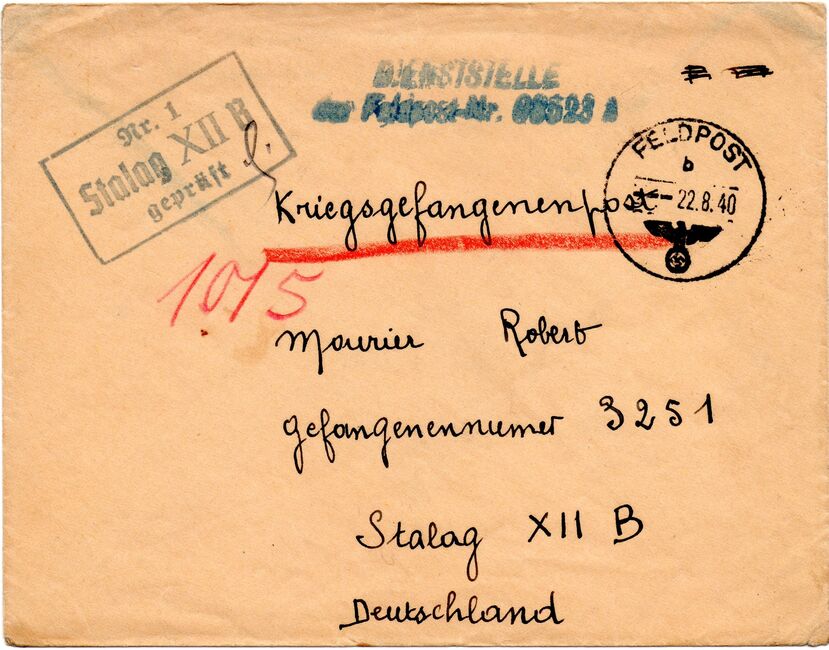 DIENSTSTELLE
der Feldpost-Nr.
Nr. 1
Stalag XII B
geprüft
FELDPOST
b
22.8.40
Kriegsgefangenenpost
10/5
Mourier Robert
gefangenennumer 3251
Stalag XII B
Deutschland